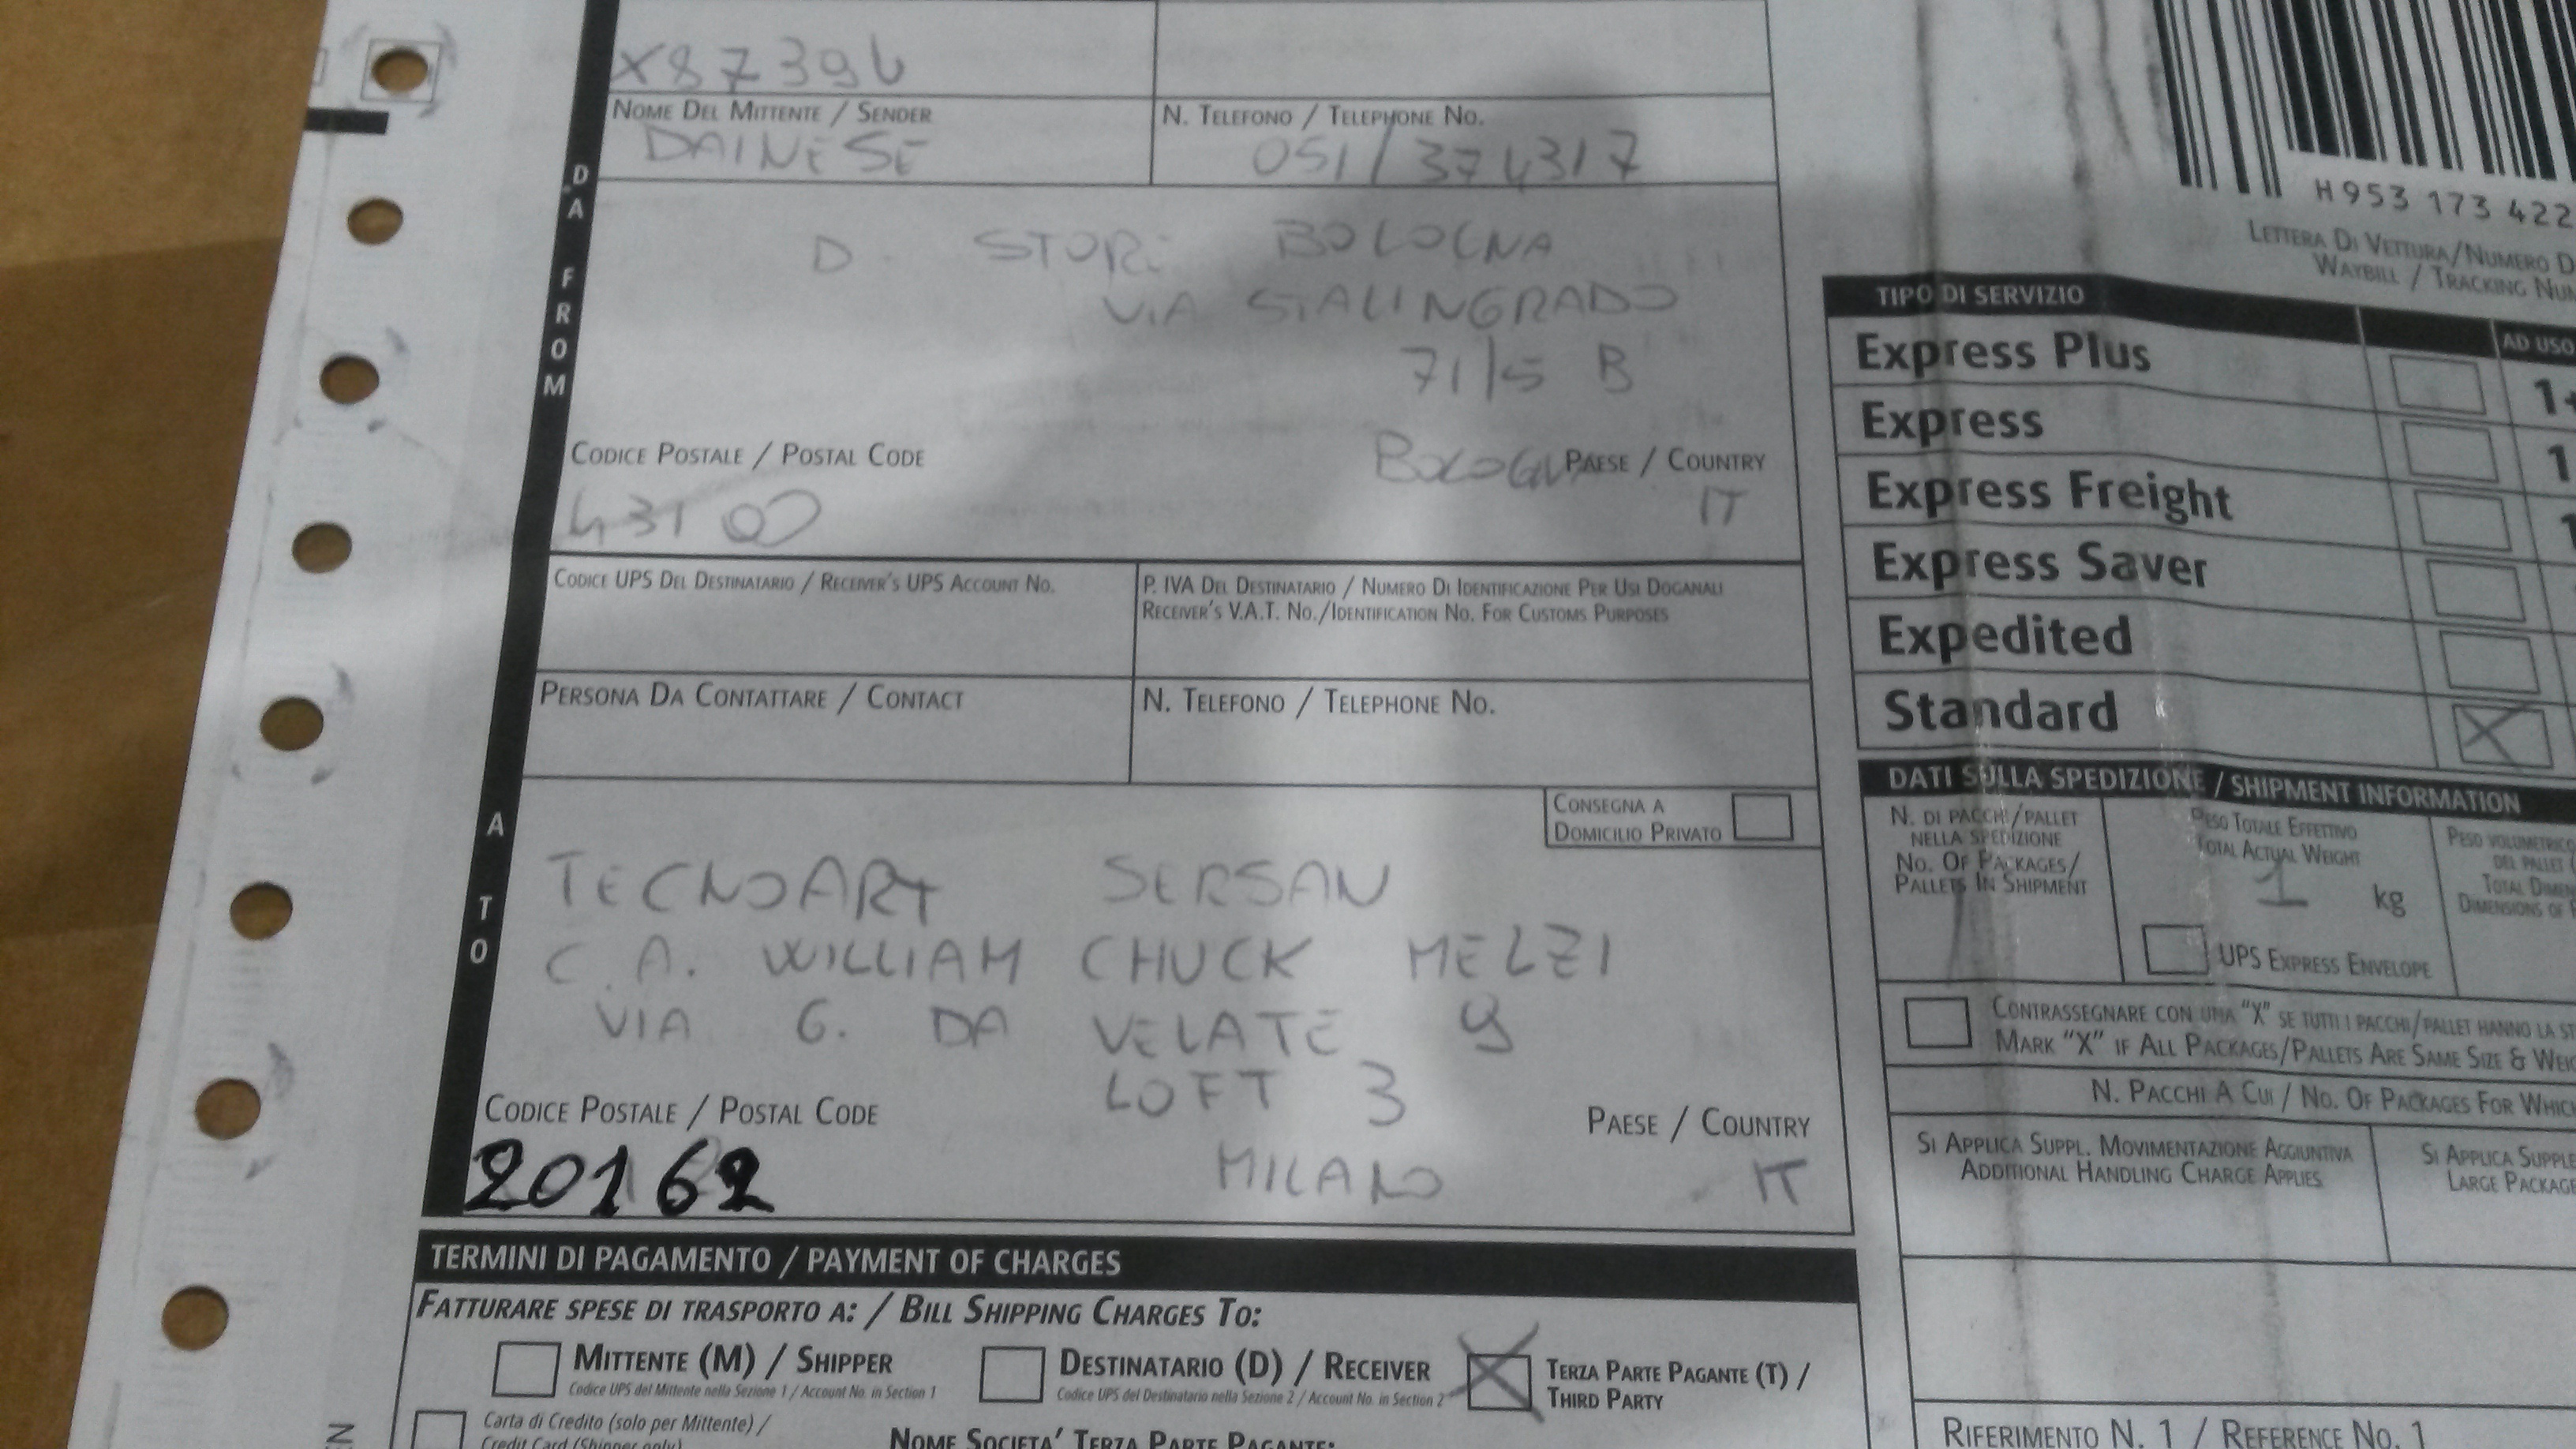 X87396
NOME DEL MITTENTE / SENDER
DAINESE
N. TELEFONO / TELEPHONE NO.
051/374317
DA FROM
D. STORE BOLOGNA
VIA STALINGRADO
71/5 B
CODICE POSTALE / POSTAL CODE
43100
BOLOGNA
PAESE / COUNTRY
IT
CODICE UPS DEL DESTINATARIO / RECEIVER'S UPS ACCOUNT NO.
P. IVA DEL DESTINATARIO / NUMERO DI IDENTIFICAZIONE PER USI DOGANALI
RECEIVER'S V.A.T. NO./IDENTIFICATION NO. FOR CUSTOMS PURPOSES
PERSONA DA CONTATTARE / CONTACT
N. TELEFONO / TELEPHONE NO.
A TO
CONSEGNA A
DOMICILIO PRIVATO
TECNOART SERSAN
C.A. WILLIAM CHUCK MELZI
VIA G. DA VELATE 9
LOFT 3
CODICE POSTALE / POSTAL CODE
20162
MILANO
PAESE / COUNTRY
IT
TERMINI DI PAGAMENTO / PAYMENT OF CHARGES
FATTURARE SPESE DI TRASPORTO A: / BILL SHIPPING CHARGES TO:
MITTENTE (M) / SHIPPER
Codice UPS del Mittente nella Sezione 1 / Account No. in Section 1
DESTINATARIO (D) / RECEIVER
Codice UPS del Destinatario nella Sezione 2 / Account No. in Section 2
TERZA PARTE PAGANTE (T) /
THIRD PARTY
Carta di Credito (solo per Mittente) /
Credit Card (Shipper only)
NOME SOCIETA' TERZA PARTE PAGANTE:
H953 173 422
LETTERA DI VETTURA/NUMERO D
WAYBILL / TRACKING NUM
TIPO DI SERVIZIO
AD USO
Express Plus
1+
Express
1
Express Freight
Express Saver
Expedited
Standard
DATI SULLA SPEDIZIONE / SHIPMENT INFORMATION
N. DI PACCHI/PALLET
NELLA SPEDIZIONE
NO. OF PACKAGES/
PALLETS IN SHIPMENT
1
PESO TOTALE EFFETTIVO
TOTAL ACTUAL WEIGHT
1 kg
UPS EXPRESS ENVELOPE
PESO VOLUMETRICO
DEL PALLET
TOTAL DIMEN
DIMENSIONS OF
CONTRASSEGNARE CON UNA "X" SE TUTTI I PACCHI/PALLET HANNO LA ST
MARK "X" IF ALL PACKAGES/PALLETS ARE SAME SIZE & WEIG
N. PACCHI A CUI / NO. OF PACKAGES FOR WHICH
SI APPLICA SUPPL. MOVIMENTAZIONE AGGIUNTIVA
ADDITIONAL HANDLING CHARGE APPLIES
SI APPLICA SUPPLE
LARGE PACKAGE
RIFERIMENTO N. 1 / REFERENCE NO. 1